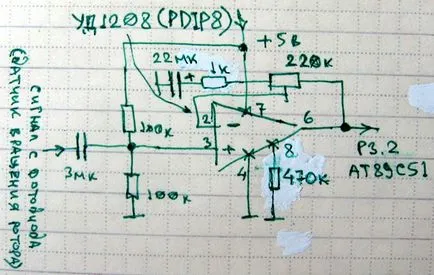 УД1208 (PDIP8)
+5в
22мк
+
1к
220к
7
2
-
6
100к
3
+
8
3мк
4
P3.2
AT89C51
100к
470к
СИГНАЛ С ФОТОДИОДА
(ДАТЧИК ВРАЩЕНИЯ
РОТОРА)